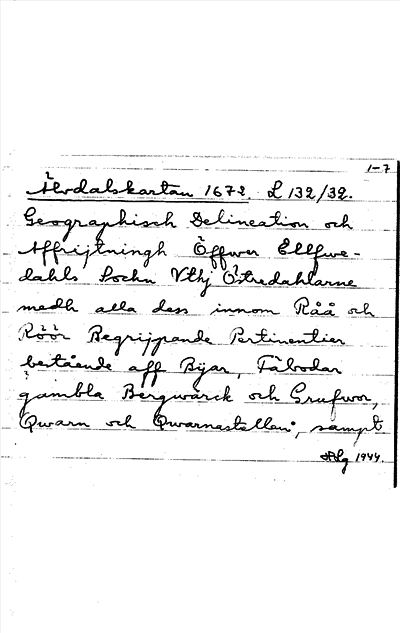 1-7
Älvdalskartan 1672. L 132/32.
Geographisch Delineation och
Affrijtningh Öffwer Ellfwe-
dahls Sochn Vthj Östredahlarne
medh alla dess innom Råå och
Röör Begrijpande Pertinentier
bestående aff Bÿar, Fäbodar
gambla Bergwärck och Grufwor,
Qwarn och Qwarnaställen, sampt
1944.